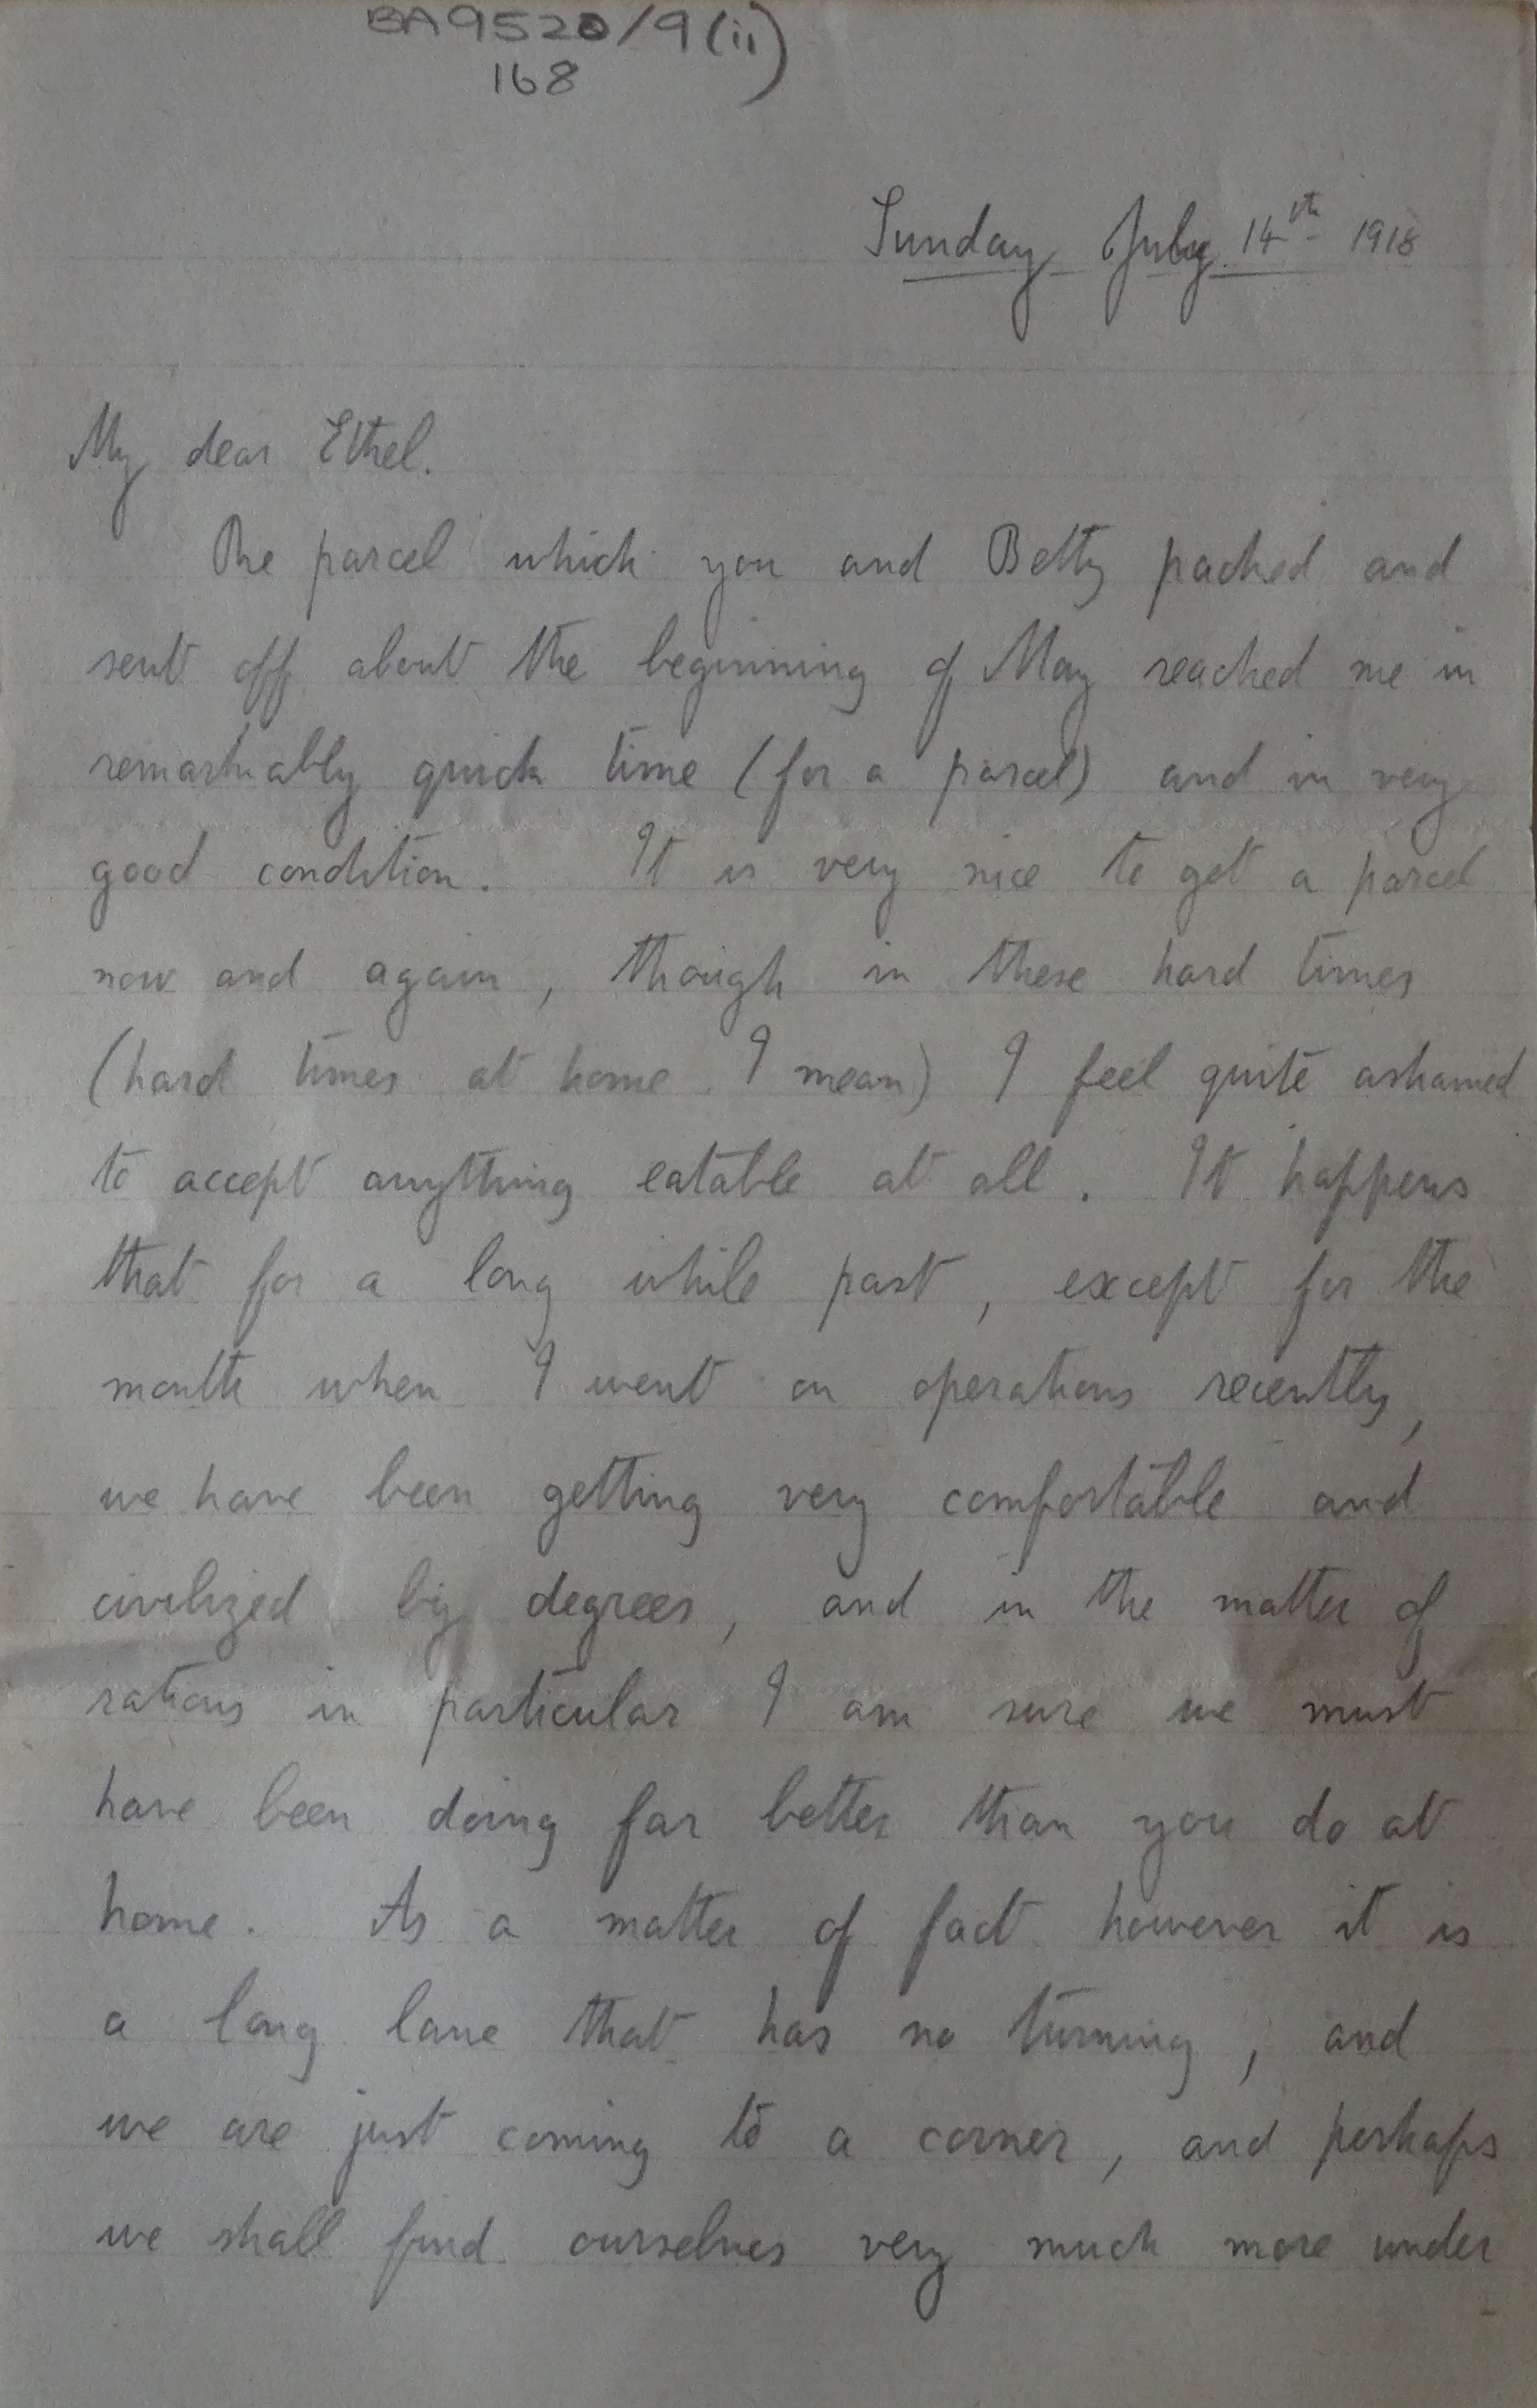 BA9520/9(ii)
168
Sunday July 14th 1918
My dear Ethel.
The parcel which you and Betty packed and
sent off about the beginning of May reached me in
remarkably quick time (for a parcel) and in very
good condition. It is very nice to get a parcel
now and again, though in these hard times
(hard times at home I mean) I feel quite ashamed
to accept anything eatable at all. It happens
that for a long while past, except for the
month when I went on operations recently,
we have been getting very comfortable and
civilized by degrees, and in the matter of
rations in particular I am sure we must
have been doing far better than you do at
home. As a matter of fact however it is
a long lane that has no turning, and
we are just coming to a corner, and perhaps
we shall find ourselves very much more under